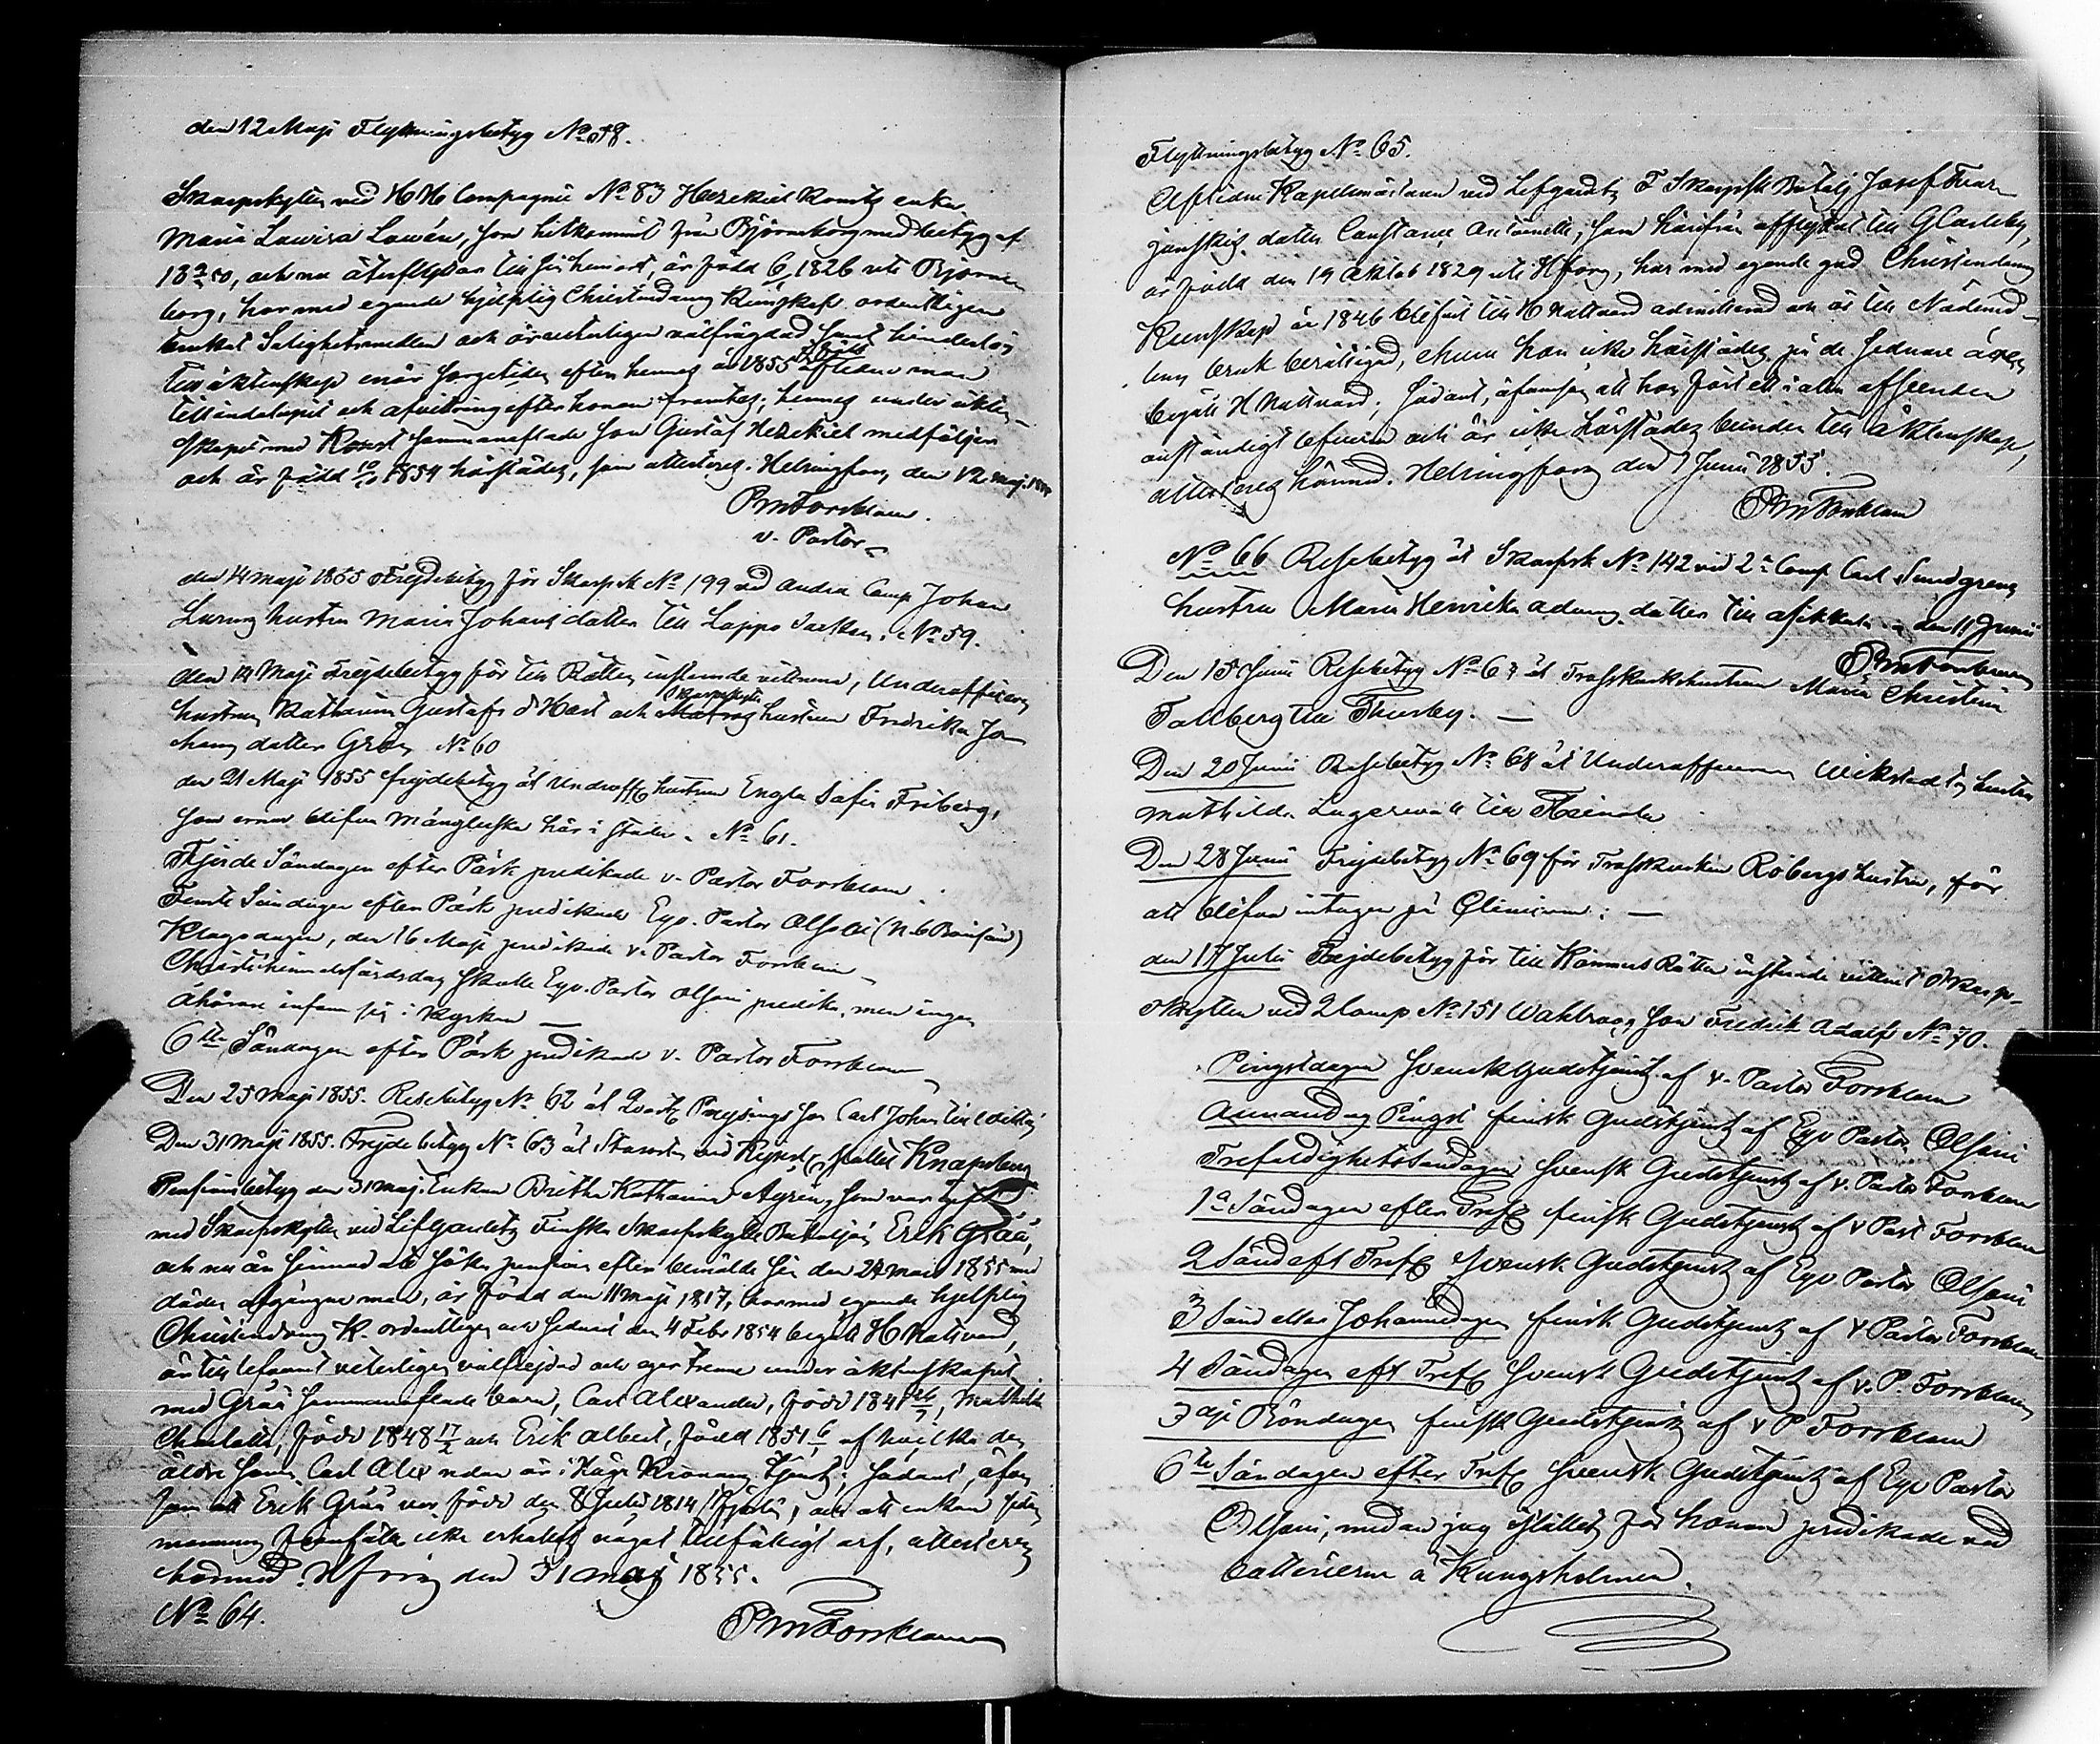 den 12 Maji Flyttningsbetyg No 58.
Skarpskytten vid H M Compagnie No 83 Hezekiel Ramstz enka
Maria Lowisa Lowén, som hitkommit från Björneborg med betyg af
18 50, och nu återflyttar till sin hemort, är född 6 1826 uti Björne
borg, har med egande hjelplig Christendoms kunskap ordentligen
brukat Salighetsmedlen och är veterligen välfrägdad samt hinderlös
till äktenskap enär sorgetiden efter hennes år 1855 aflidne man
tilländalupit och afvittring efter honom företes; hennes under äkten-
skapet med sammanaflade son Gustaf Hezekiel medföljer
och är född 1854 härstädes, som attesteras. Helsingfors den 12 maj 1855
PmForsblom.
v. Pastor
den 14 maji 1855 Frejdebetyg för Skarpsk No 199 vid andra Comp Johan
hustru Maria Johans dotter till Lappo Socken. No 59.
den 14 Maji Frejdebetyg för till Rätten instämde vittnen, Underofficers
hustrun Katharina Gustafs d Hast och Skarpskytte hustrun Fredrika Jo
hans dotter No 60
den 21 Maji 1855 frejdebetyg åt Underoff hustrun Engla Sofia Friberg,
som ernar blifva månglerska här i staden. No 61.
Fjerde Söndagen efter Påsk predikade v. Pastor Forsblom
Femte Söndagen efter Påsk predikade Egv. Pastor Alfsoni
Klagodagen, den 16 Maji predikade v. Pastor Forsblom
Christi himmelsfärdsdag skulle Egv. Pastor Alfsoni predika, men ingen
åhörare infann sig i kyrkan
6te Söndagen efter Påsk predikade v. Pastor Forsblom
Den 25 Maji 1855. Resebetyg No 62 åt son Carl Johan till
Den 31 Maji 1855. Frejdebetyg No 63 åt vid stallet Knapsberg
Pensionsbetyg den 31 maj. Enkan Britha Katharina Agrén, som var gift
med Skarpskytten vid Lifgardets Finska Skarpskytte Bataljon Erik Gråå,
och nu är sinnad att söka pension efter bemälde sin den 27 mars 1855 med
döden afgångne man, är född den 11 maji 1817, har med egande hjelplig
Christendoms K. ordentligen och sednast den 4 Febr 1854 begått H Nattvard,
är till lefvernet veterligen välfrejdad och eger trenne under äktenskapet
med Gråå sammanaflade barn, Carl Alexander, född 1841, Mathilda
Charlotta, född 1848 17 och Erik Albert, född 1851 6 af hvilka den
äldre sonen Carl Alexander är i Höga Kronans tjenst; sådant, äfven
som att Erik Gråå var född den 8 Juli 1814, och att enkan sedan
mannens frånfälle icke erhållit något tillfälligt arf, attesteras
härmed. Hfors den 31 maj 1855.
No 64.
PmForsblom
Flyttningsbetyg No 65.
Aflidne Kapellmästaren vid Lifgardets F Skarpsk Batalj Josef
dotter Constance Antoinette, som härifrån afflyttat till GCarleby,
är född den 19 Oktob 1829 uti Hfors, har med egande god Christendoms
Kunskap år 1846 blifvit till H Nattvard admitterad och är till Nådemed-
lens bruk berättigad, ehuru hon icke härstädes på de sednare åren
begått H Nattvard; sådant, äfvensom att hon fört ett i allo afseenden
anständigt lefverne och är icke härstädes bunden till äktenskap,
attesteras härmed. Helsingfors den 1 Juni 1855.
PmForsblom
No 66 Resebetyg åt Skarpsk No 142 vid 2a Comp Carl Sundgrens
hustru Maria Henrika Adams dotter till Asikkala den 11 Junii
PmForsblom
Den 15 Juni Resebetyg No 67 åt Trosskuskhustrun Maria Christina
Fallberg till Thusby.
Den 20 Junii Resebetyg No 68 åt Underofficeren Wikstedts hustru
Mathilda Lagervall till Heinola
Den 28 Juni Frejdebetyg No 69 för Trosskusken Röbergs hustru, för
att blifva intagen på Clinicum.
den 17 Julii Frejdebetyg för till Kämners Rätten instämde vittnet Skarp-
skytten vid 2 Comp No 151 Wahlroos son Fredrik Adolf No 70.
Pingstdagen Svensk gudstjenst af v. Pastor Forsblom
Annandag Pingst finsk Gudstjenst af Egv Pastor Alfsoni
Trefaldighetssöndagen Svensk Gudstjenst af v. Pastor Forsblom
1a Söndagen efter Tref finsk Gudstjenst af v Past Forsblom
2 Sönd eft Tref Svensk Gudstjenst af Egv Pastor Alfsoni
3 Sönd eller Johannidagen finsk Gudstjenst af v Pastor Forsblom
4 Söndagen eft Tref Svensk Gudstjenst af v. P. Forsblom
3dje Böndagen finsk Gudstjenst af v P Forsblom
6te Söndagen efter Tref Svensk Gudstjenst af Egv Pastor
Alfsoni, medan jag i stället för honom predikade vid
batterierna å Kungsholmen.